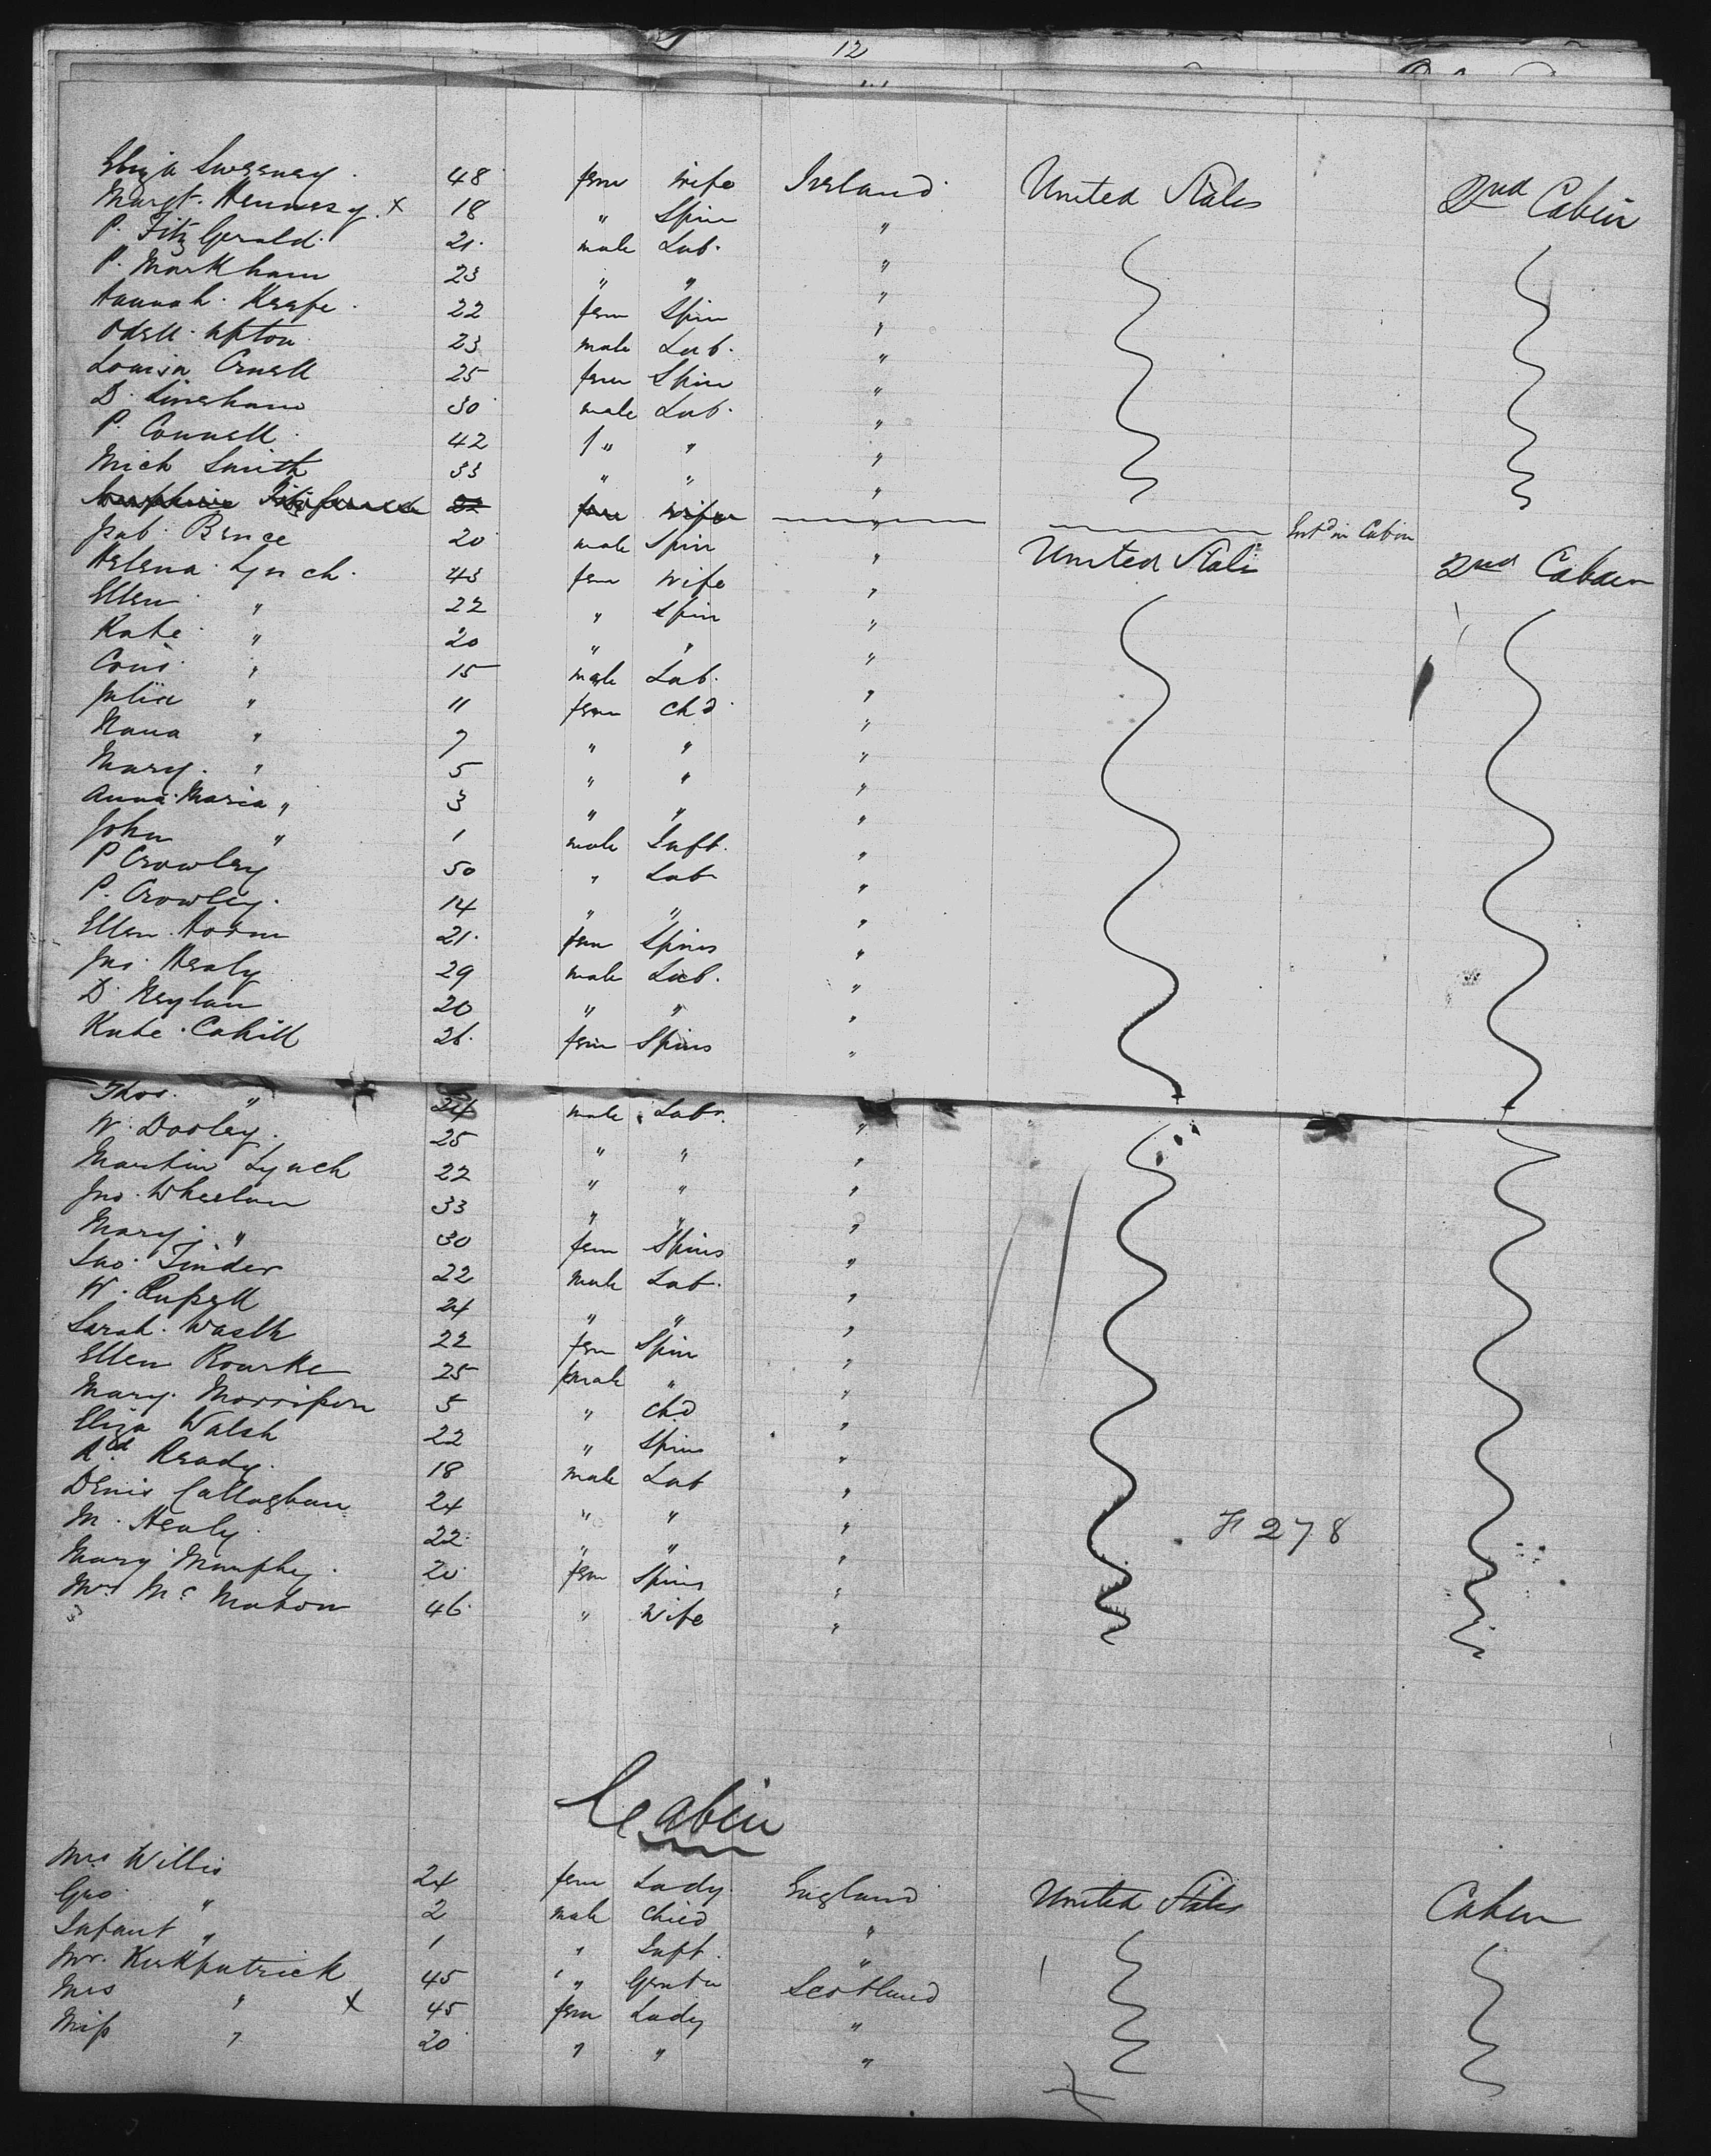 12
Eliza Sweeney 48 fem wife Ireland United States 2nd Cabin
Margt. Hennesy x 18 " Spin "
P. Fitz Gerald 21 male Lab. "
P. Markham 23 " " "
Hannah Keefe 22 fem Spin "
Odell Upton 23 male Lab. "
Louisa 25 fem Spin "
D. 30 male Lab. "
P. Connell 42 " " "
Mich Smith 33 " " "
wife " Entd in Cabin
Bruce 20 male Spin " United States 2nd Cabin
Helena Lynch 43 fem wife "
Ellen " 22 " Spin "
Kate " 20 " " "
Cons " 15 male Lab. "
Julia " 11 fem chd "
Nana " 7 " " "
Mary " 5 " " "
Anna Maria " 3 " " "
John " 1 male Inft. "
P Crowley 50 " Lab "
P. Crowley 14 " " "
Ellen 21 fem Spins "
Jno. Healy 29 male Lab. "
D. Neylan 20 " " "
Kate Cahill 26 fem Spins "
Thos. " 24 male Labr. "
W. Dooley 25 " " "
Martin Lynch 22 " " "
Jno. Wheelan 33 " " "
Mary " 30 fem Spins "
Tinder 22 male Lab. "
W. Russell 24 " " "
Sarah Waslh 22 fem Spin "
Ellen Rourke 25 " "
Mary Morrison 5 " chd "
Eliza Walsh 22 " Spins "
Rd. Ready 18 male Lab "
Denis Callaghan 24 " " "
M. Healy 22 " " " 278
Mary Murphy 20 fem Spins "
Mrs Mc Mahon 46 " Wife "
Cabin
Mrs Willis 24 fem Lady England United States Cabin
Geo " 2 male Child "
Infant " 1 " Inft. "
Mr. Kirkpatrick 45 " Gentn Scotland
Mrs " x 45 fem Lady "
Miss " 20 " " "